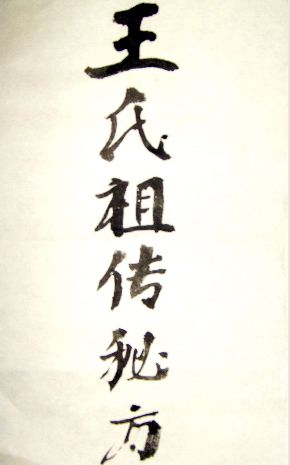 王氏祖传秘方